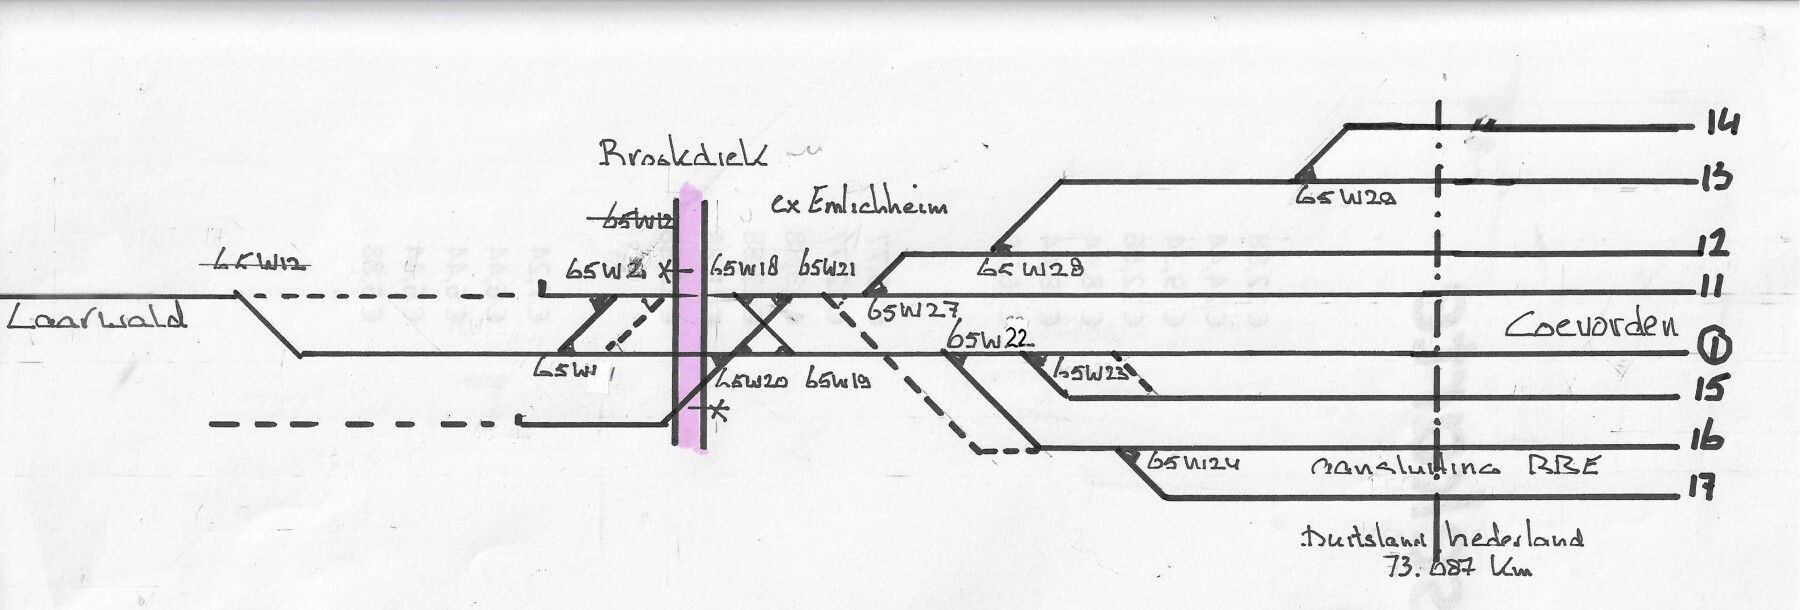 14
Brookdiek
13
65W29
ex Emlichheim
65W12
12
65W12
65W2
65W18
65W21
65W28
11
65W27
Laarwald
Coevorden
65W22
1
65W1
65W20
65W19
65W23
15
16
65W24
aansluiting BBE
17
Duitsland
Nederland
73.687 Km